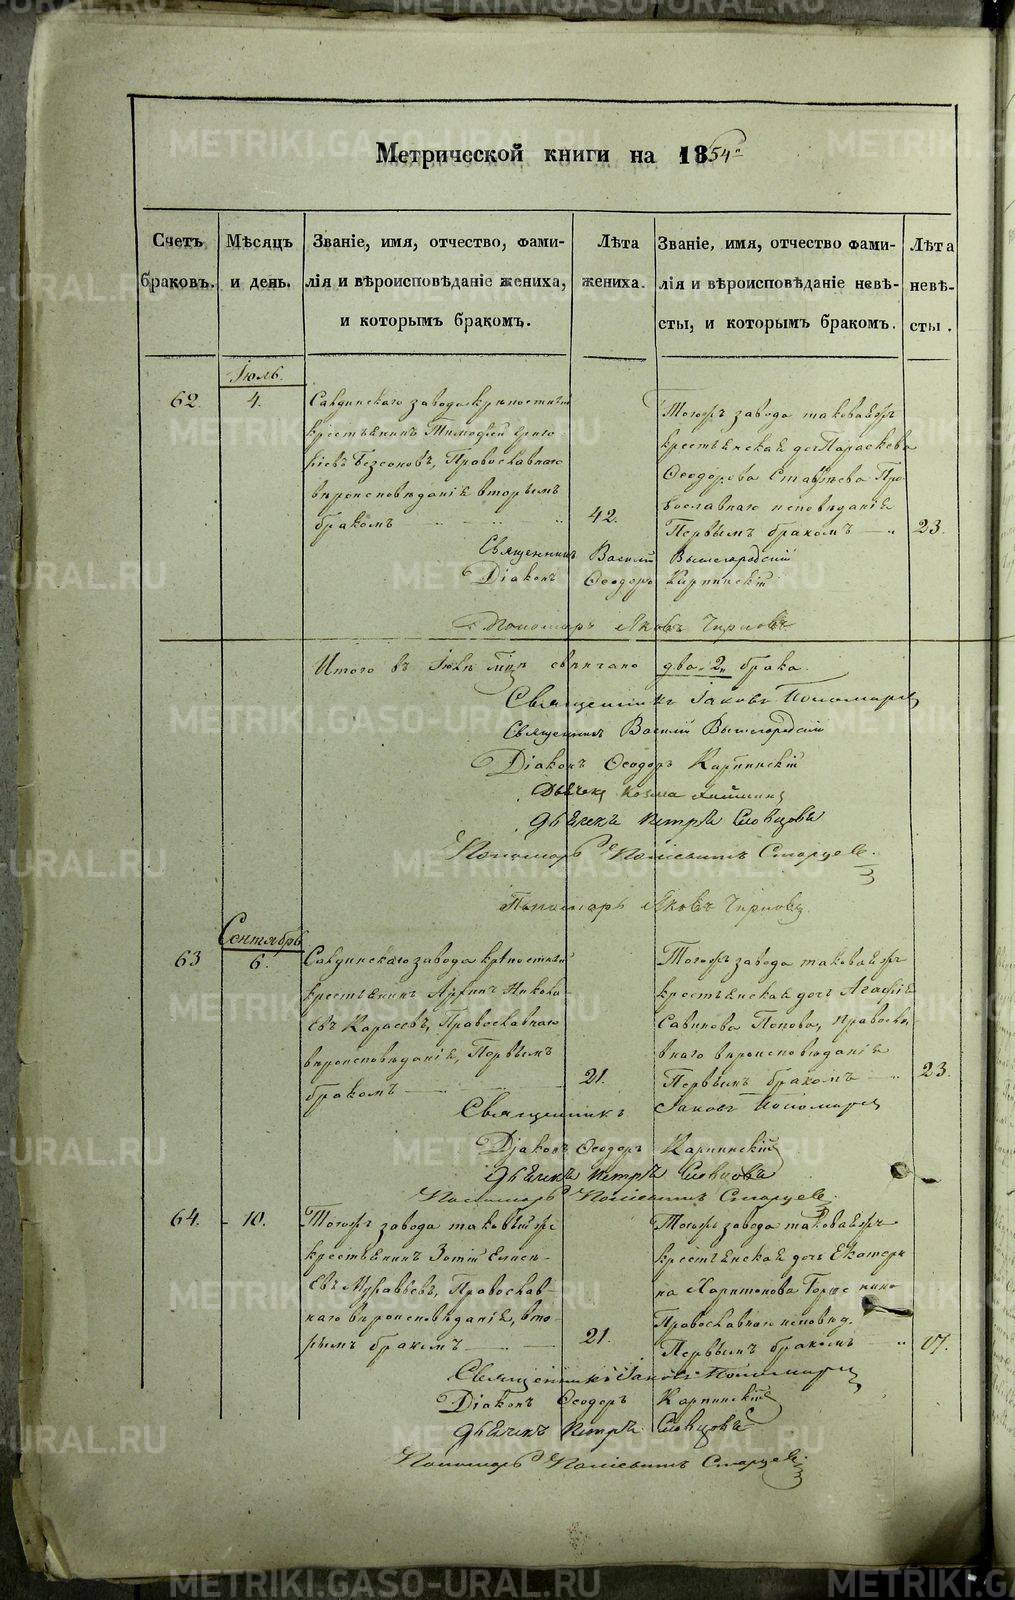 Метрической книги на 1854 г.
Счетъ браковъ.
Мѣсяцъ и день.
Званіе, имя, отчество, фами-
лія и вѣроисповѣданіе жениха,
и которымъ бракомъ.
Лѣта жениха.
Званіе, имя, отчество фами-
лія и вѣроисповѣданіе невѣ-
сты, и которымъ бракомъ.
Лѣта невѣ-
сты.
Іюль.
62. 4.
Салдинскаго завода крѣпостный
крестьянинъ Тимофей Григо-
ріевъ Безсоновъ, Православнаго
вѣроисповѣданія вторымъ
бракомъ
42.
Тогожъ завода таковаяжъ
крестьянская дочь Параскева
Ѳеодорова Прa-
вославнаго исповѣданія
Первымъ бракомъ
23.
Священникъ Василій Вышегородскій
Діаконъ Ѳеодоръ Карпинскій
Пономарь Яковъ Черновъ
Итого въ Іюлѣ м-цѣ свѣнчано два 2 брака.
Священникъ Іаковъ Пономаревъ
Священникъ Василій Вышегородскій
Діаконъ Ѳеодоръ Карпинскій
Дьячекъ Козма
Дьячекъ Петръ Словцовъ
Пономарь Старцевъ.
Пономарь Яковъ Черновъ.
Сентябрь
63 6.
Салдинскаго завода крѣпостный
крестьянинъ Никола-
евъ Карасевъ, Православнаго
вѣроисповѣданія, Первымъ
бракомъ
21.
Тогожъ завода таковаяжъ
крестьянская дочь Агафія
Савинова Попова, Правосла-
внаго вѣроисповѣданія
Первымъ бракомъ
23.
Священникъ Іаковъ Пономаревъ
Діаконъ Ѳеодоръ Карпинскій
Дьячекъ Петръ Словцовъ
Пономарь Старцевъ.
64. 10.
Тогожъ завода таковый же
крестьянинъ Зотій Елисе-
евъ Муравьевъ, Православ-
наго вѣроисповѣданія, вто-
рымъ бракомъ
21.
Тогожъ завода таковаяжъ
крестьянская дочь Екатери-
на Харитонова
Православнаго исповѣд.
Первымъ бракомъ
17.
Священникъ Іаковъ Пономаревъ
Діаконъ Ѳеодоръ Карпинскій
Дьячекъ Петръ Словцовъ
Пономарь Старцевъ.
METRIKI.GASO-URAL.RU